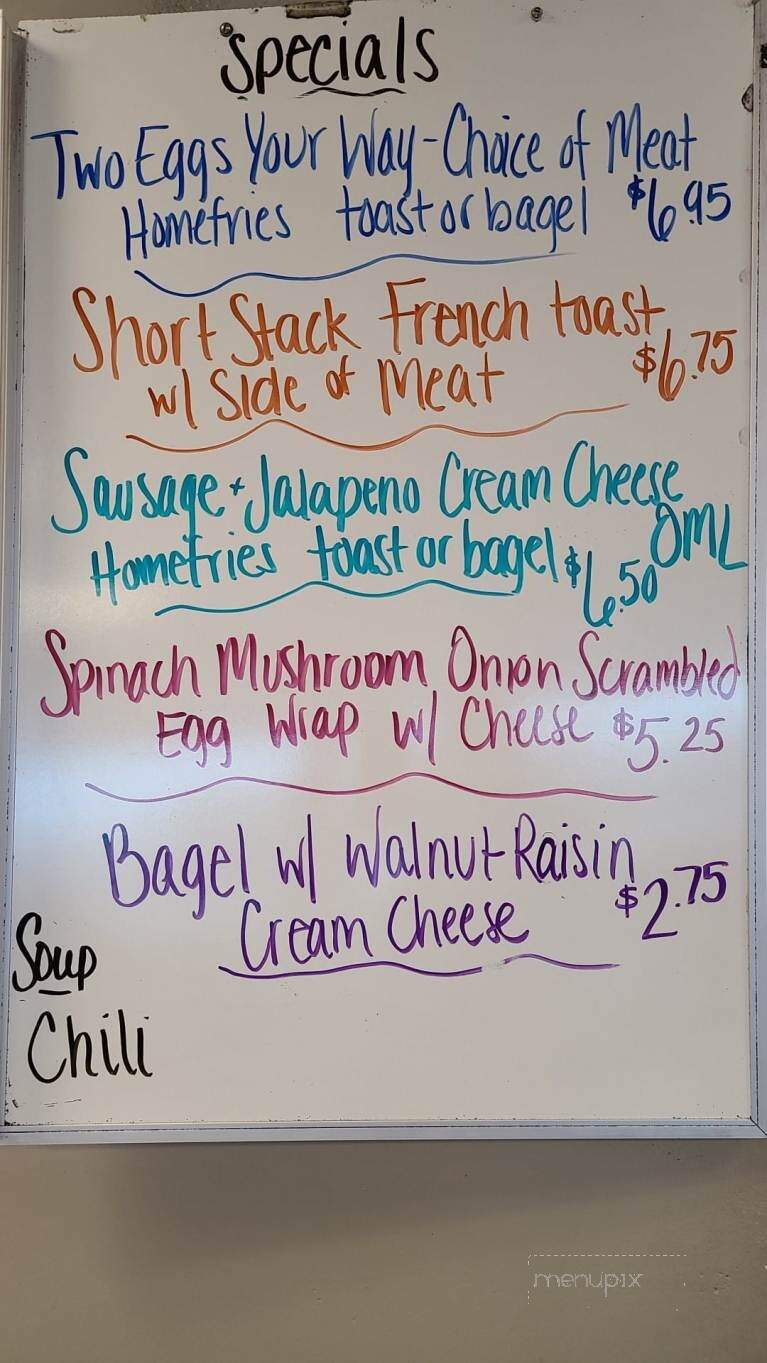 Specials
Two Eggs Your Way-Choice of Meat
Homefries toast or bagel $6.95
Short Stack French toast
w/ Side of Meat $6.75
Sausage + Jalapeno Cream Cheese
OML
Homefries toast or bagel $6.50
Spinach Mushroom Onion Scrambled
Egg Wrap w/ Cheese $5.25
Bagel w/ Walnut Raisin
Cream Cheese $2.75
Soup
Chili
menupix